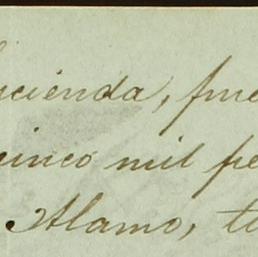 cienda, fue
cinco mil pe
Alamo, t